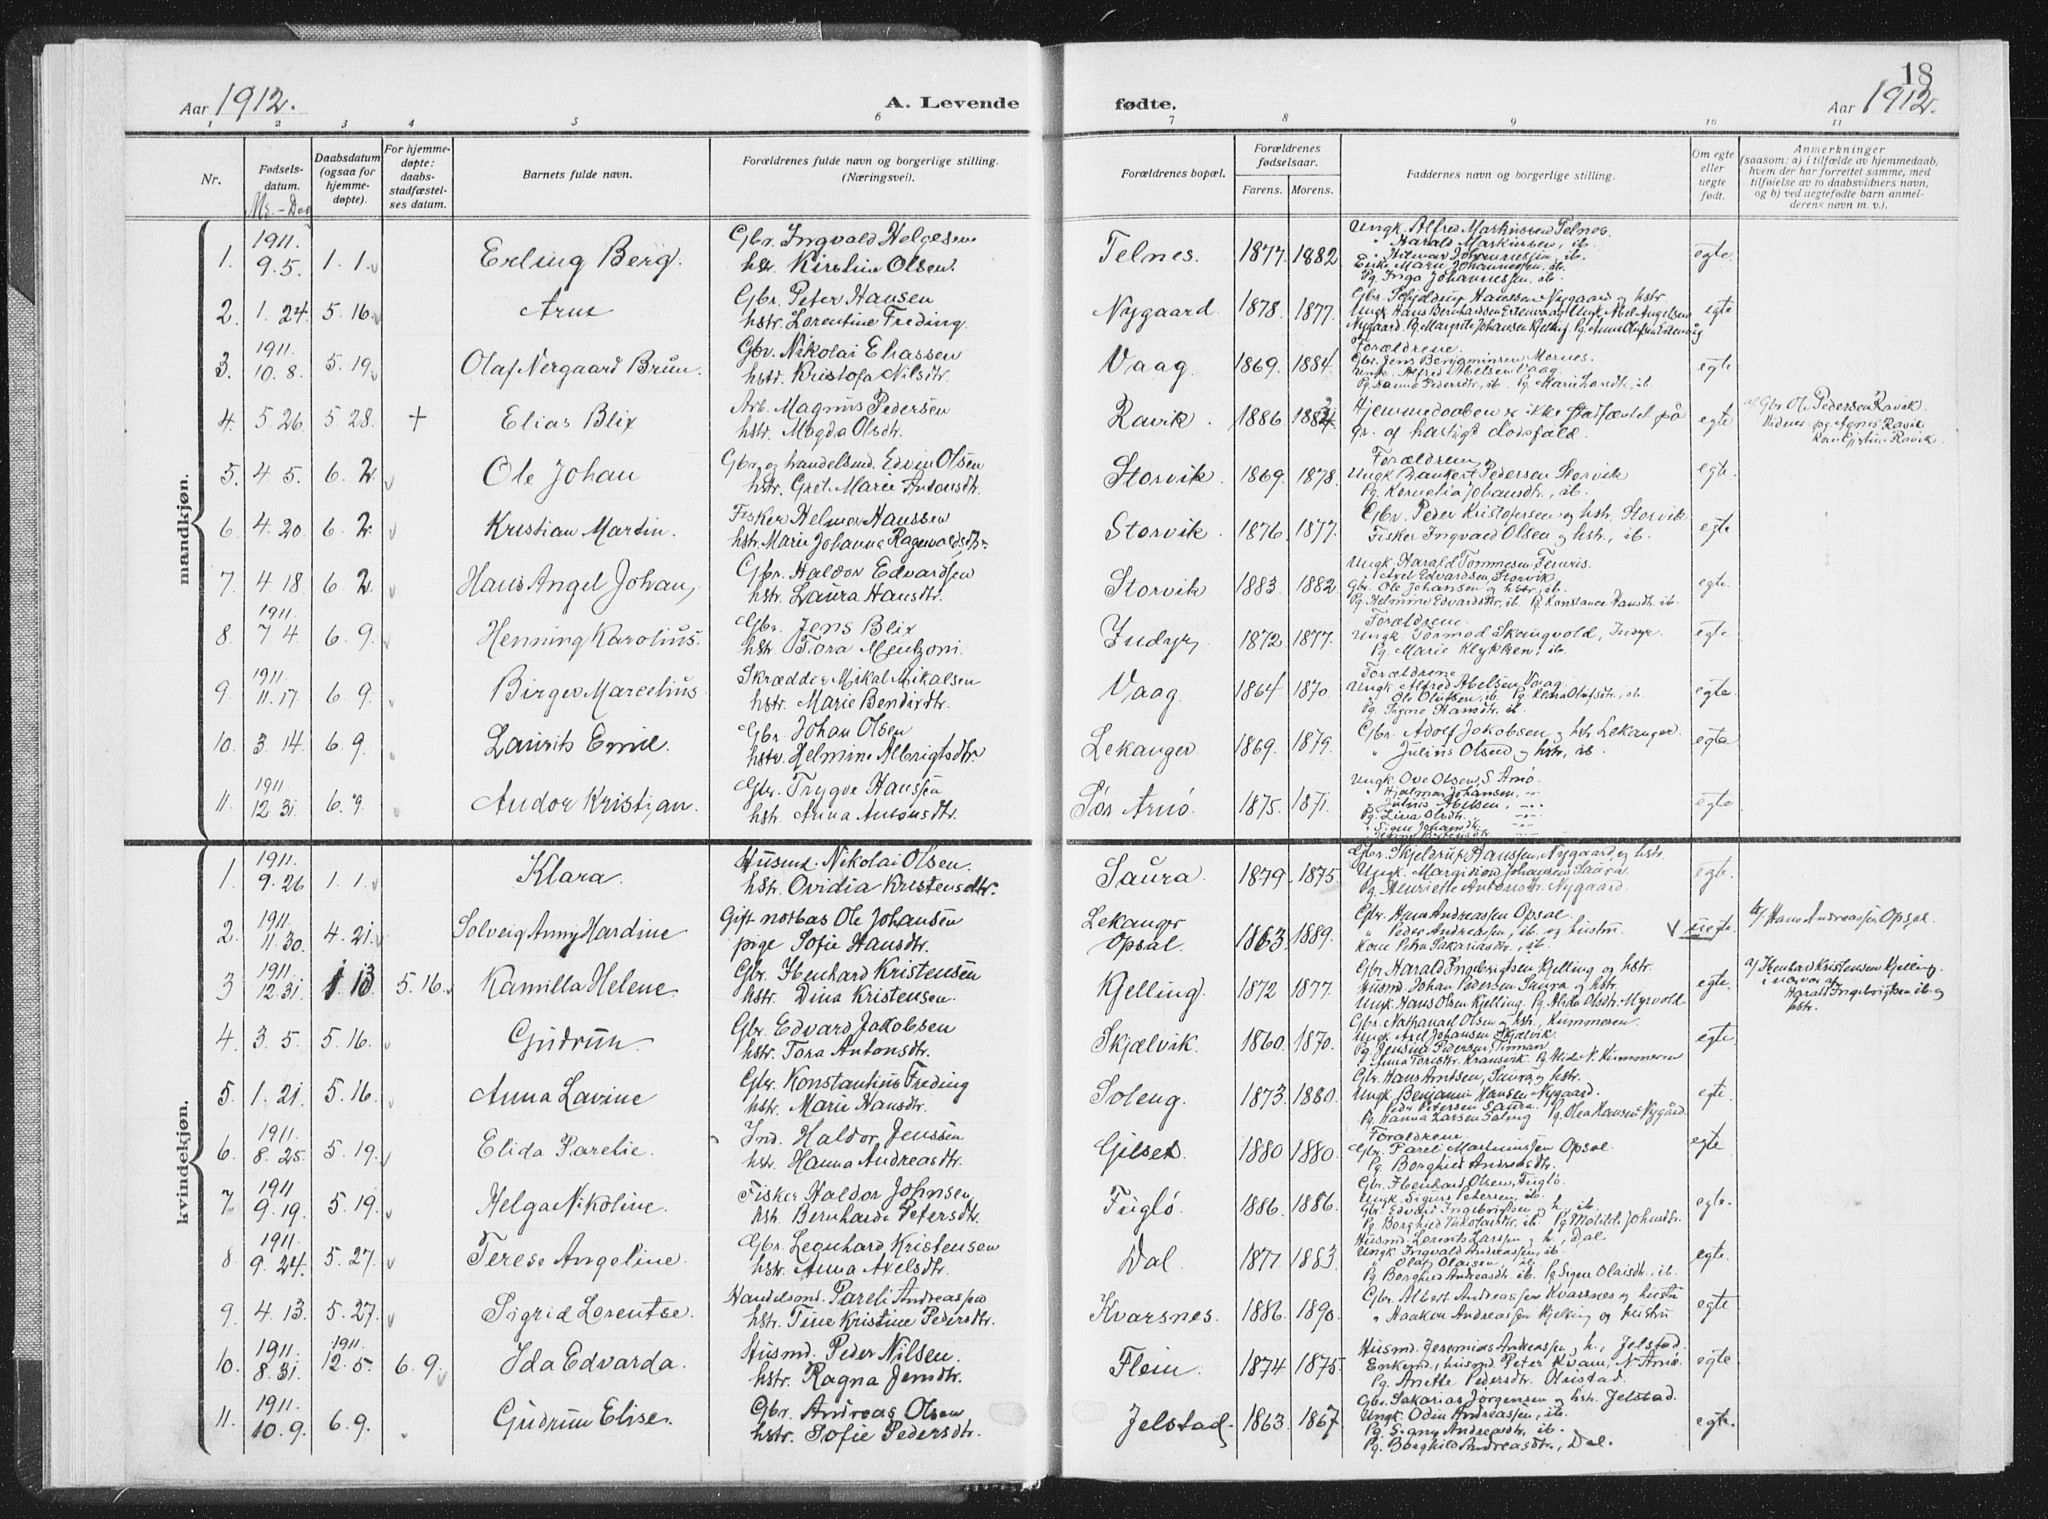 18
Aar 1912.
A. Levende
fødte.
Aar 1912.
1 2 3 4 5 6 7 8 9 10 11
Nr.
Fødsels-
datum.
Md. - Dag
Daabsdatum
(ogsaa for
hjemme-
døpte).
For hjemme-
døpte:
daabs-
stadfæstel-
ses datum.
Barnets fulde navn.
Forældrenes fulde navn og borgerlige stilling.
(Næringsvei).
Forældrenes bopæl.
Forældrenes
fødselsaar.
Farens. Morens.
Faddernes navn og borgerlige stilling.
Om egte
eller
uegte
født.
Anmerkninger
(saasom: a) i tilfælde av hjemmedaab,
hvem der har forrettet samme, med
tilføielse av to daabsvidners navn,
og b) ved uegtefødte barn anmel-
derens navn m. v.).
mandkjøn.
1. 1911. 9.5. 1.1. Erling Berg. Gbr. Ingvald Helgesen
hstr. Kirstine Olsen. Telnes. 1877. 1882 egte.
Ungk. Alfred Markussen Telnes.
" Harald Markussen, ib.
" Hilmar Johannessen, ib.
Enke Marie Johannessen, ib.
Pg. Inga Johannessen, ib.
2. 1.24. 5.16. Arne Gbr. Peter Hansen
hstr. Lorentine Freding. Nygaard 1878. 1877. egte
Gbr. Schjeldrup Hanssen Nygaard og hstr.
Ungk Hans Bernhardsen Estenvaag Ungk. Abel Angelsen
Nygaard. Pg Margrete Johansen Kjelling. Pg. Anna Olufsen Estenvåg
3. 1911. 10.8. 5.19. Olaf Nergaard Brun. Gbr. Nikolai Eliassen
hstr. Kristofa Nilsdtr. Vaag. 1869. 1884. egte
Forældrene.
Gbr. Jens Benjaminsen Mornes.
Ungk. Alfred Abelsen Vaag.
Pg. Hanna Pedersdtr, ib. Pg. Marie ib.
4. 5.26. 5.28. + Elias Blix Arb. Magnus Pedersen
hstr. Magda Olsdtr. Ravik. 1886. 1884. egte
Hjemmedaaben er ikke stadfæstet på
gr. af hastigt dødsfald.
a/ Gbr. Ole Pedersen Ravik.
Vidner og Agnes Ravik
Kone Ravik.
5. 4.5. 6.2. Ole Johan Gbr. og handelsmd. Edvin Olsen
hstr. Gret. Marie Antonsdtr. Storvik. 1869. 1878. egte.
Forældrene
Ungk Dankert Pedersen Storvik
Pg. Kornelia Johansdtr., ib.
6. 4.20. 6.2. Kristian Martin. Fisker Helmer Hanssen
hstr. Marie Johanna Ragnvaldsdtr. Storvik. 1876. 1877. egte
Gbr. Peder Kristofersen og hstr. Storvik
Fisker Ingvald Olsen og hstr., ib.
7. 4.18. 6.2. Hans Angel Johan, Gbr. Haldor Edvardsen
hstr. Laura Hansdtr. Storvik 1883. 1882. egte.
Ungk. Harald Tommesen Ferøris.
" Axel Edvardsen, Storvik.
Gbr. Ole Johansen og hstr., ib.
Pg. Helmine Edvardsdtr., ib. Pg. Konstance Hansdtr. ib.
8. 1911. 7.4. 6.9. Henning Karolius. Gbr. Jens Blix
hstr. Tora Mentzoni. Indyr, 1872. 1877. egte
Forældrene.
Ungk. Tormod Skaugvold, Indyr.
Pg. Marie Klykken, ib.
9. 1911. 11.17. 6.9. Birger Marcelius. Skrædder Mikal Mikalsen
hstr. Marie Bendixdtr. Vaag. 1864. 1870. egte.
Forældrene
Ungk Alfred Abelsen Vaag.
" Ole Olufsen, ib. Pg. Klara Olufsdtr., ib.
Pg. Signe Hansdtr. ib.
10. 3.14. 6.9. Laurits Emil. Gbr. Johan Olsen
hstr. Helmine Albrigtsdtr. Lekanger 1869. 1879. egte
Gbr. Adolf Jakobsen og hstr. Lekanger.
" Julius Olsen og hstr., ib.
11. 1911 12.31. 6.9. Andor Kristjan. Gbr. Trygve Hanssen
hstr. Anna Antonsdtr. Sør Arnø. 1875. 1871. egte
Ungk Ove Olsen S. Arnø.
" Hjalmar Johansen, "
" Julius Abelsen, "
Pg. Lina Olsdtr. "
" Signe Johansdtr. "
kvindekjøn.
1. 1911. 9.26 1.1. Klara. Husmd. Nikolai Olsen.
hstr. Ovidia Kristensdtr. Saura. 1879. 1875. egte.
Gbr. Skjeldrup Hanssen, Nygaard, og hstr.
Ungk. Margidion Johansen Saura.
Pg. Henriette Antonsdtr. Nygaard.
2. 1911. 11.30. 4.21. Solveig Anny Hardine Gift notbas Ole Johansen
pige Sofie Hansdtr. Lekanger
Opsal. 1863. 1889. v uegte.
Gbr. Hans Andreassen Opsal.
" Peder Andreassen, ib. og hustru.
Kone Petra Sakariasdtr., ib.
b/ Hans Andreassen Opsal.
3 1911. 12.31. 1.13 5.16. Kamilla Helene. Gbr. Ibenhard Kristensen
hstr. Dina Kristensen. Kjelling. 1872 1877. egte.
Gbr. Harald Ingebrigtsen Kjelling og hstr.
Husmd. Johan Pedersen Saura og hstr.
Ungk Hans Olsen Kjelling. Pg Alida Olsdtr. Myrvold.
a/ Ibenhard Kristensen Kjelling.
i nærvær af
Harald Ingebrigtsen ib. og
hstr.
4. 3.5. 5.16. Gudrun Gbr. Edvard Jakobsen
hstr. Tora Antonsdtr. Skjælvik. 1860. 1870. egte.
Gbr. Nathanael Olsen og hstr., Kummeren.
Ungk Axel Johansen Skjælvik.
Pg. Jensine Pedersen, Finnan
" Anna Toresdtr. Kransvik. Pg Alida N. Kummeren
5. 1.21. 5.16. Anna Lavine Gbr. Konstantius Freding
hstr. Marie Hansdtr. Soleng. 1873. 1880. egte.
Gbr. Hans Arntsen, Saura, og hstr.
Ungk. Benjamin Hansen Nygaard.
" Peder Petersen Saura. Pg. Olea Hansen Nygård.
Pg. Hanna Larsen Saleng
6. 1911. 8.25. 5.19. Elida Parelie. Ind. Haldor Jenssen
hstr. Hanna Andreasdtr. Gilset. 1880 1880. egte
Forældrene
Gbr. Pareli Martinussen Opsal.
Pg. Borghild Andreasdtr.
7 1911 9.19. 5.19. Helga Nikoline. Fisker Haldor Johnsen
hstr. Bernharde Petersdtr. Fuglø. 1886. 1886. egte.
Gbr. Ibenhard Olsen, Fuglø.
Ungk. Sigurd Petersen, ib.
Gbr. Edvard Ingebrigtsen og h., ib.
Pg. Borghild Nikolaisdtr. ib. Pg. Matilde Johnsdtr.
8. 1911. 9.24. 5.27. Terese Angeline. Gbr. Leonhard Kristensen
hstr. Anna Axelsdtr. Dal. 1877. 1883. egte.
Husmd. Lorents Larssen og h., Dal.
Ungk Ingvald Andreassen, ib.
" Olaf Olaisen, ib.
Pg Borghild Andreasdtr. ib. Pg Signe Olaisdtr., ib.
9. 4.13. 5.27. Sigrid Lorentse. Handelsmd. Pareli Andreassen
hstr. Tine Kristine Pedersdtr. Kvarsnes. 1886. 1890. egte
Gbr. Albert Andreassen Kvarsnes og hustru
" Haakon Andreassen Kjelling og hustru
10. 1911. 8.31. 1911. 12.5. 6.9. Ida Edvarda. Husmd. Peder Nilsen.
hstr. Ragna Jensdtr. Flein. 1874 1875. egte.
Husmd. Jeremias Andreassen og h., Jelstad.
Enkemd., husmd. Peter Kvam, N. Arnø.
Pg. Anette Pedersdtr. Olnistad.
11. 1911. 10.9. 6.9. Gudrun Elise. Gbr. Andreas Olsen
hstr. Sofie Pedersdtr. Jelstad. 1863. 1867 egte.
Gbr. Sakarias Jørgensen og hstr. Jelstad.
Ungk. Odin Andreassen, ib.
Pg. Signe Andreasdtr., ib.
Pg. Borghild Andreasdtr., Dal.